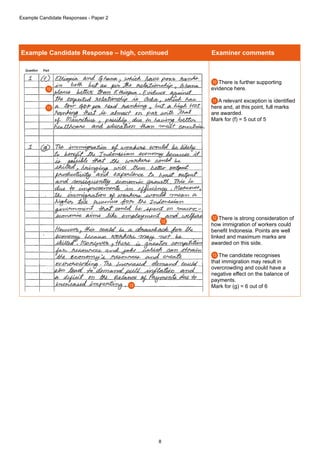 Example Candidate Responses - Paper 2
Example Candidate Response – high, continued
Examiner comments
Question Part
1 (f) Ethiopia and Ghana, which have poor ranks
in both but as per the relationship, Ghana
above better than Ethiopia. Evidence against
the expected relationship is Cuba, which has
a low GDP per head ranking, but a high HDI
ranking that is almost on par with that
of Mauritius, possibly due to having better
healthcare and education than most countries.
10
11
10 There is further supporting
evidence here.
11 A relevant exception is identified
here and, at this point, full marks
are awarded.
Mark for (f) = 5 out of 5
1 (g) The immigration of workers would be likely
to benefit the Indonesian economy because it
is possible that the workers could be
skilled, bringing with them better output
productivity and experience to boost output
and consequently economic growth. This is
due to improvements in efficiency. Moreover,
the immigration of workers would mean a
higher tax income for the Indonesian
government that could be spent on macro-
economic aims like employment and welfare.
12
However, this could be a drawback for the
economy because workers may not be
skilled. Moreover, there is greater competition
for resources and jobs which can drain
the economy's resources and create
overcrowding. The increased demand could
also lead to demand pull inflation and
a deficit on the Balance of Payments due to
increased importing.
13
12 There is strong consideration of
how immigration of workers could
benefit Indonesia. Points are well
linked and maximum marks are
awarded on this side.
13 The candidate recognises
that immigration may result in
overcrowding and could have a
negative effect on the balance of
payments.
Mark for (g) = 6 out of 6
8